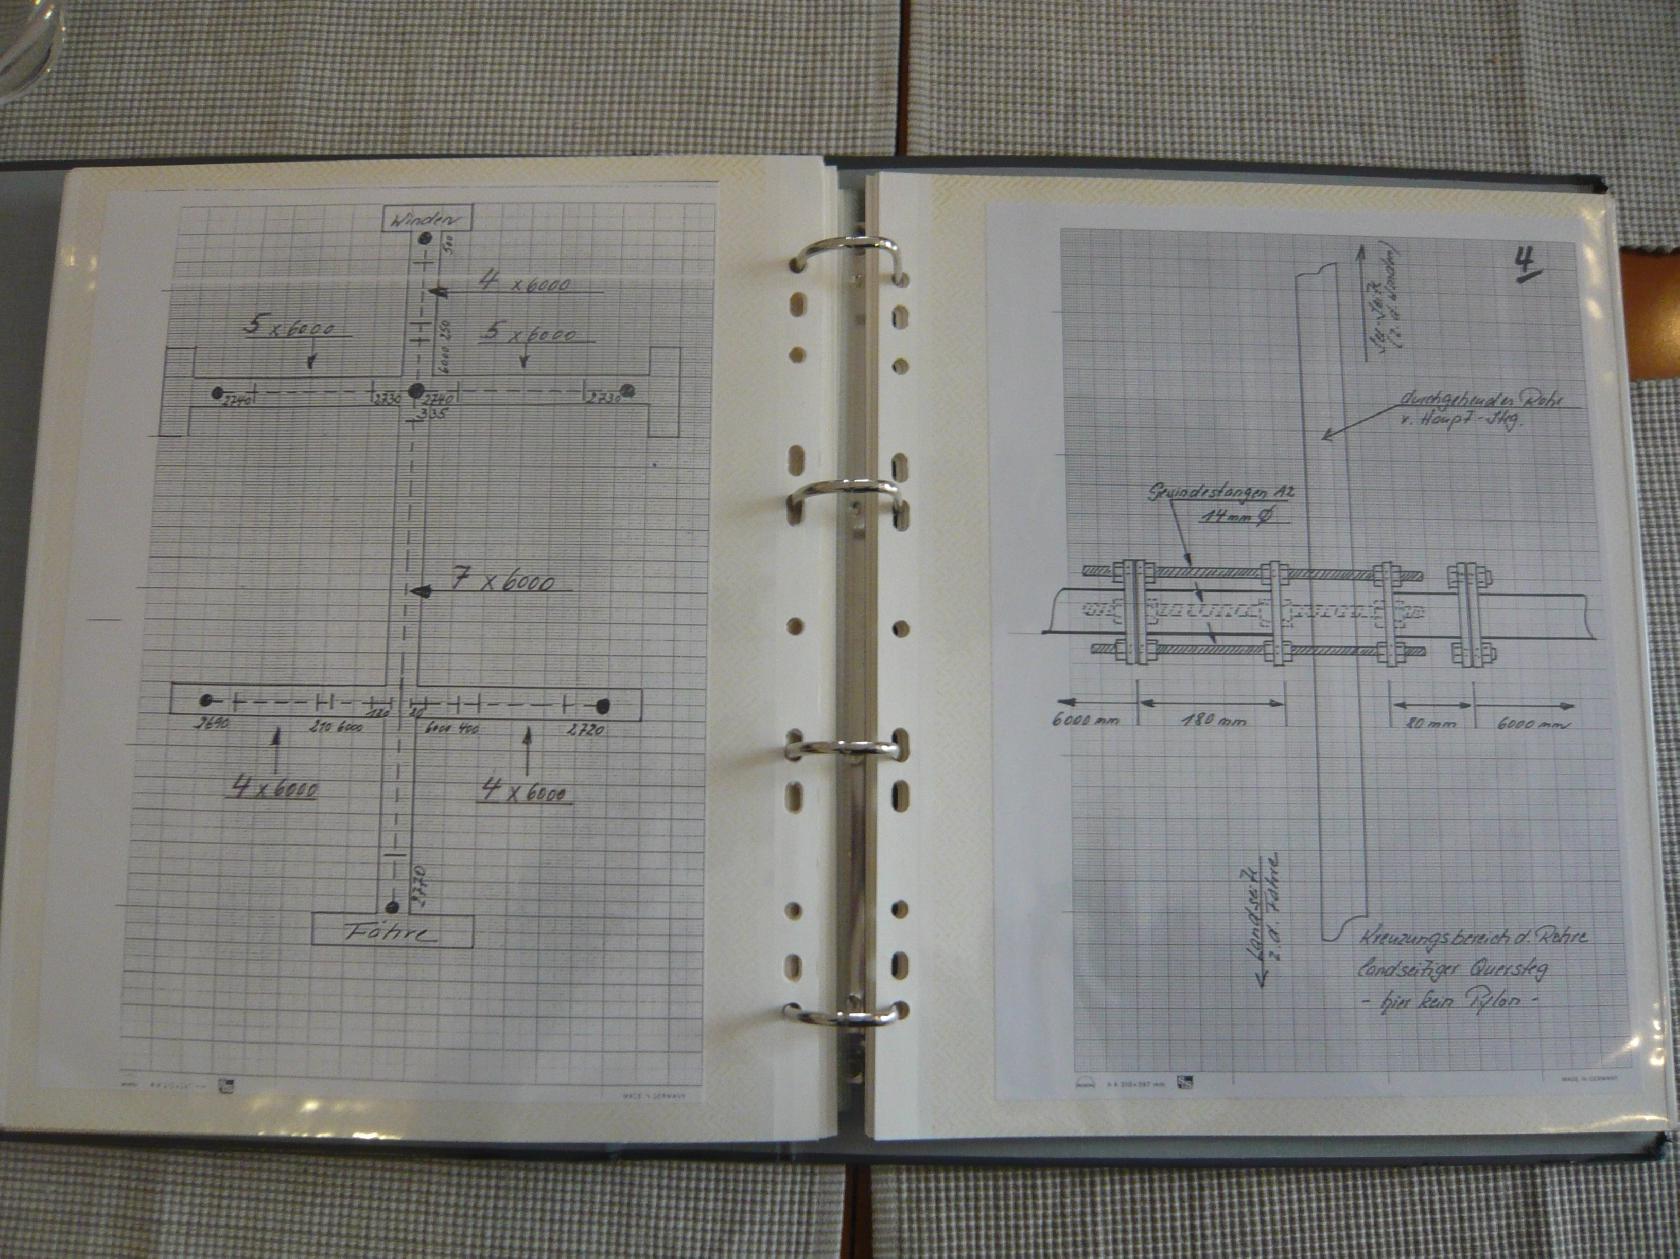 Winden
500
4 x 6000
5 x 6000
5 x 6000
6000 250
2740
2730
2740
2730
335
7 x 6000
2690
210 6000
180
80
6000 400
2720
4 x 6000
4 x 6000
2770
Fähre
MADE IN GERMANY
4
See-Seite
(z. d. Winden)
durchgehendes Rohr
v. Haupt-Steg.
Gewindestangen A2
14 mm Ø
6000 mm
180 mm
80 mm
6000 mm
Landseite
z. d. Fähre
Kreuzungsbereich d. Rohre
landseitiger Quersteg
- hier kein Pylon -
A4 210 x 297 mm
MADE IN GERMANY